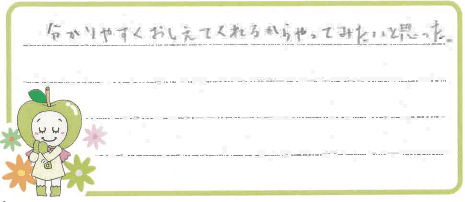 分かりやすくおしえてくれるからやってみたいと思った。